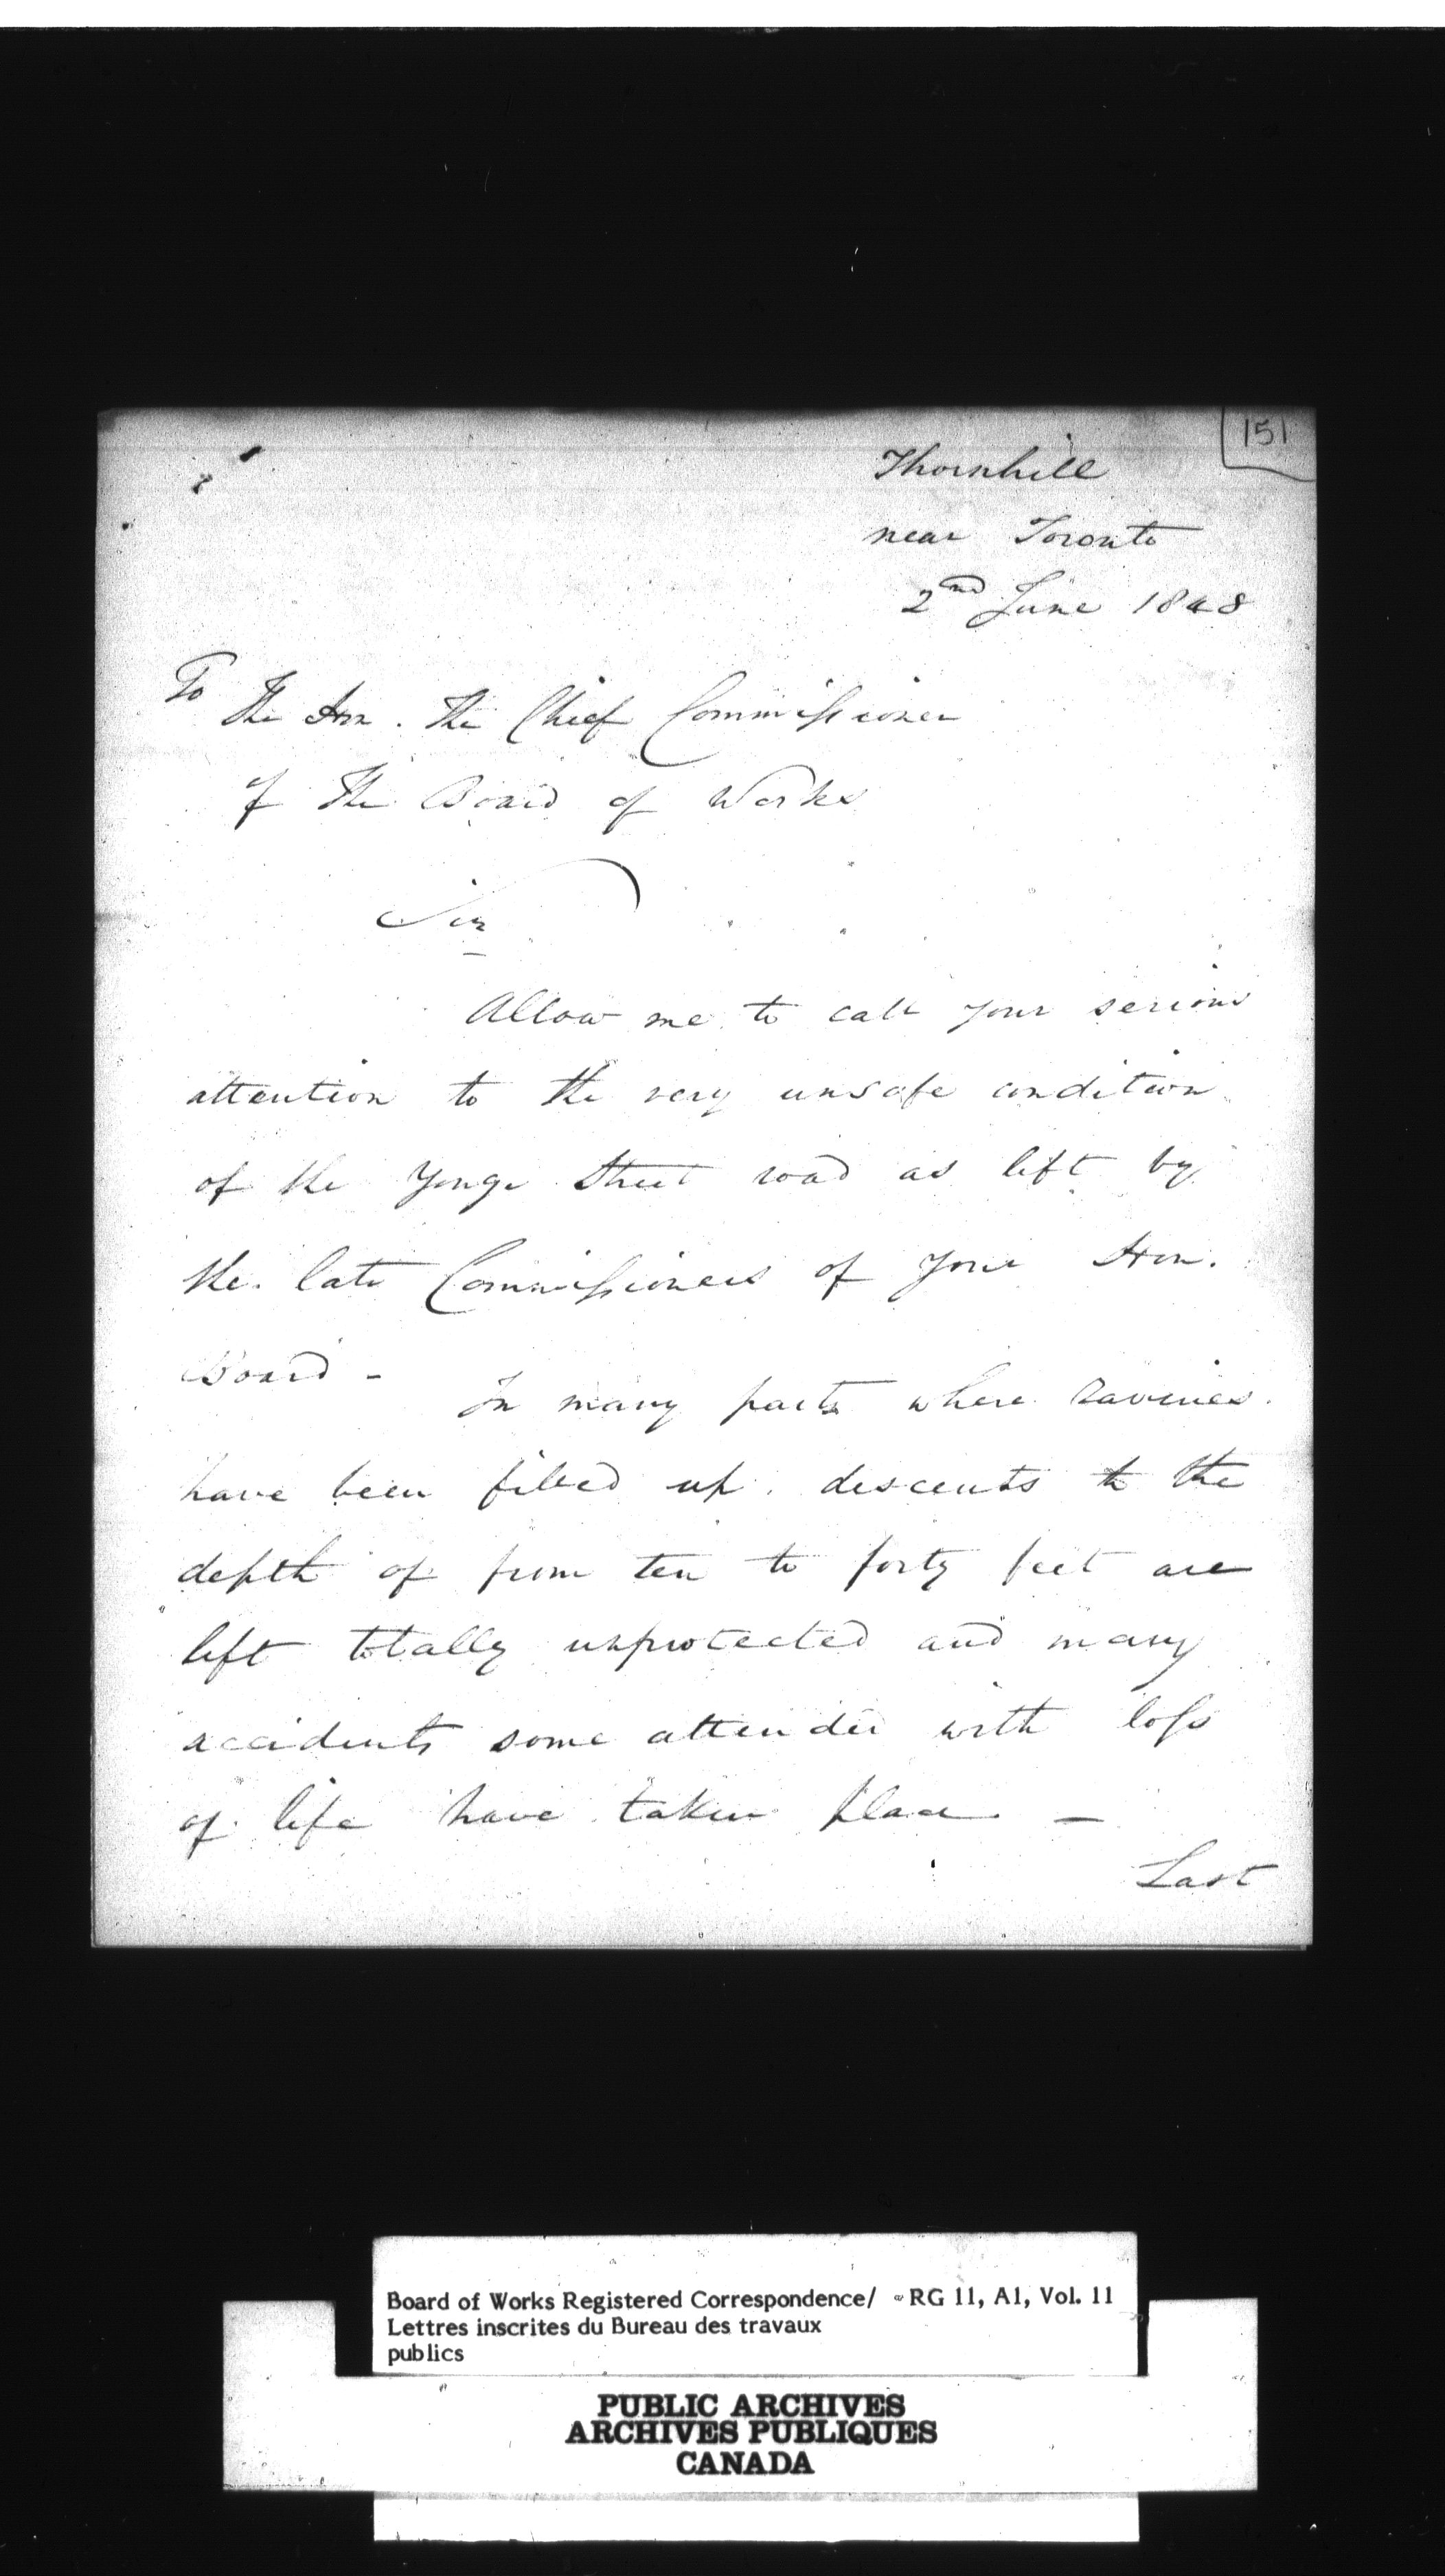 151
Thornhill
near Toronto
2nd June 1848
To
The Hon. The Chief Commissioner
of The Board of Works
Sir
Allow me to call your serious
attention to the very unsafe condition
of the Yonge Street road as left by
the late Commissioners of your Hon.
Board -
In many parts where Ravines
have been filled up. descents to the
depth of from ten to forty feet are
left totally unprotected and many
accidents some attended with loss
of life have taken place. —
Last
Board of Works Registered Correspondence/ RG 11, A1, Vol. 11
Lettres inscrites du Bureau des travaux
publics
PUBLIC ARCHIVES
ARCHIVES PUBLIQUES
CANADA